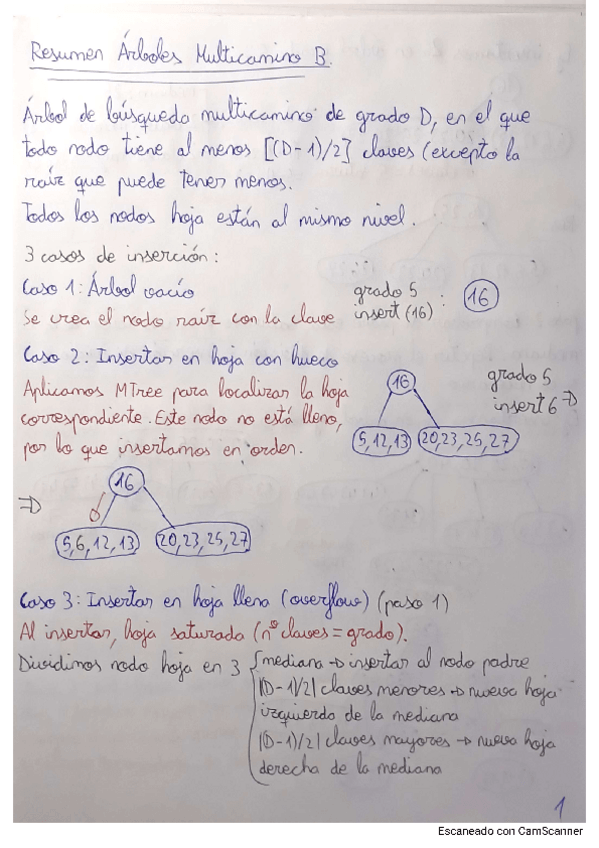 Resumen Árboles Multicamino B.
Árbol de búsqueda multicamino de grado D, en el que
todo nodo tiene al menos [(D-1)/2] claves (excepto la
raíz que puede tener menos.
Todos los nodos hoja están al mismo nivel.
3 casos de inserción:
Caso 1: Árbol vacío
Se crea el nodo raíz con la clave
grado 5
insert (16) :
16
Caso 2: Insertar en hoja con hueco
Aplicamos MTree para localizar la hoja
correspondiente. Este nodo no está lleno,
por lo que insertamos en orden.
16
5,12,13 20,23,25,27
grado 5
insert 6 ⇒
⇒
16
6
5,6,12,13 20,23,25,27
Caso 3: Insertar en hoja llena (overflow) (paso 1)
Al insertar, hoja saturada (nº claves = grado).
Dividimos nodo hoja en 3 { mediana → insertar al nodo padre
|(D-1)/2| claves menores → nueva hoja
izquierda de la mediana
|(D-1)/2| claves mayores → nueva hoja
derecha de la mediana
1
Escaneado con CamScanner